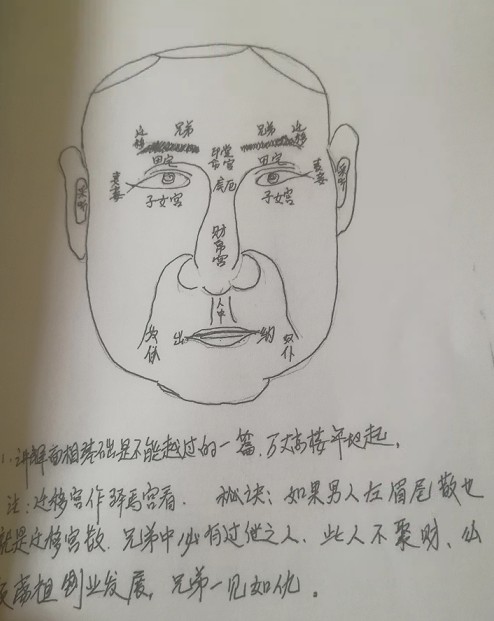 迁移 兄弟 兄弟 迁移
田宅 印堂 田宅
命宫
夫妻 疾厄 夫妻
子女宫 子女宫
财帛宫
人中
奴仆 出 纳 奴仆
1.讲解面相基础是不能越过的一篇,万丈高楼平地起,
注:迁移宫作驿马宫看. 秘诀:如果男人在眉尾散也
就是迁移宫散.兄弟中必有过世之人.此人不聚财、
创业发展,兄弟一见如仇。